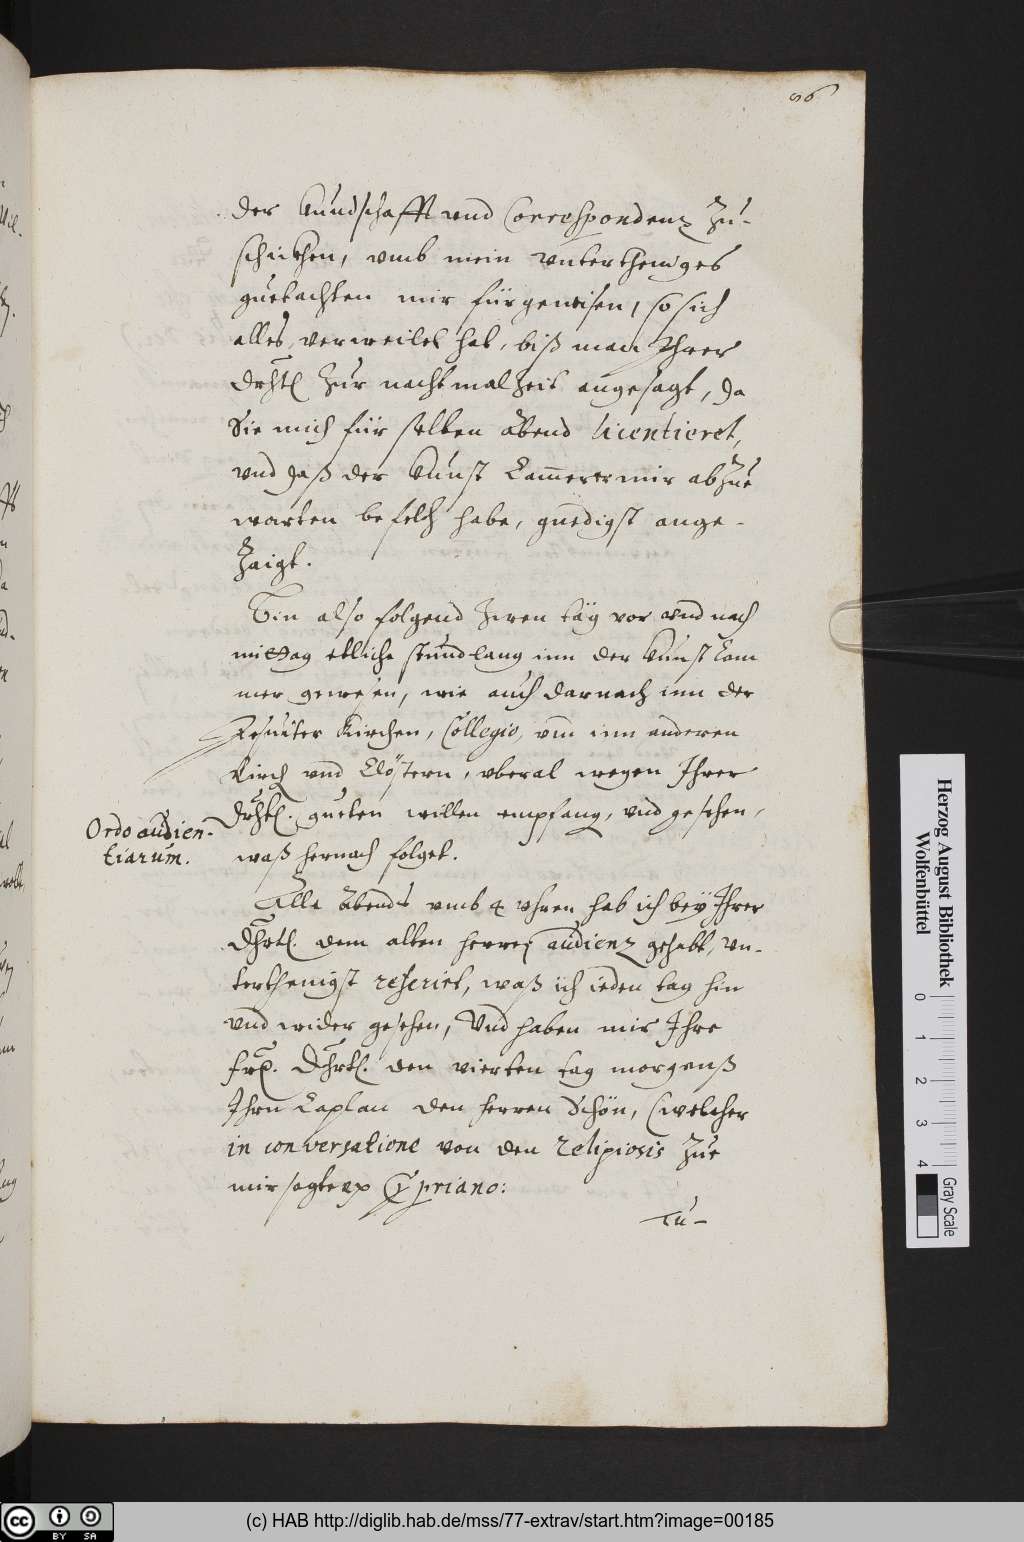 86
der Kundschafft vnd Correspondenz zu-
schickhen, vmb mein vntertheniges
guetachten mir fürgewisen, so sich
alles verweilet hat, biß man Ihrer
Drhtl zur nachtmalzeit angesagt, da
Sie mich für selben abend licentieret,
vnd daß der Kunst Cam̅erer mir abzue
warten befelch habe, gnedigst ange-
zaigt.
Bin also folgend zwen täg vor vnd nach
mittag etliche stund lang inn der Kunst Cam
mer gewesen, wie auch darnach inn der
Jesuiter Kirchen, Collegio, vnd inn anderen
Kirch vnd Clöstern, vberal wegen Ihrer
Drhtl. gueten willen empfang, vnd gesehen,
waß hernach folget.
Ordo audien-
tiarum.
Alle Abends vmb 4 vhren hab ich bey Ihrer
Dhrtl. dem alten herren audienz gehabt, vn-
terthenigst referirt, waß ich ieden tag hin
vnd wider gesehen, Vnd haben mir Ihre
frx. Dhrtl. den vierten tag morgenß
Ihrn Caplan den herren Schön, (welcher
in conversatione von den Religiosis zue
mir sagte ex Cypriano:
Tu-
Herzog August Bibliothek
Wolfenbüttel
0 1 2 3 4
Gray Scale
cc BY SA
(c) HAB http://diglib.hab.de/mss/77-extrav/start.htm?image=00185